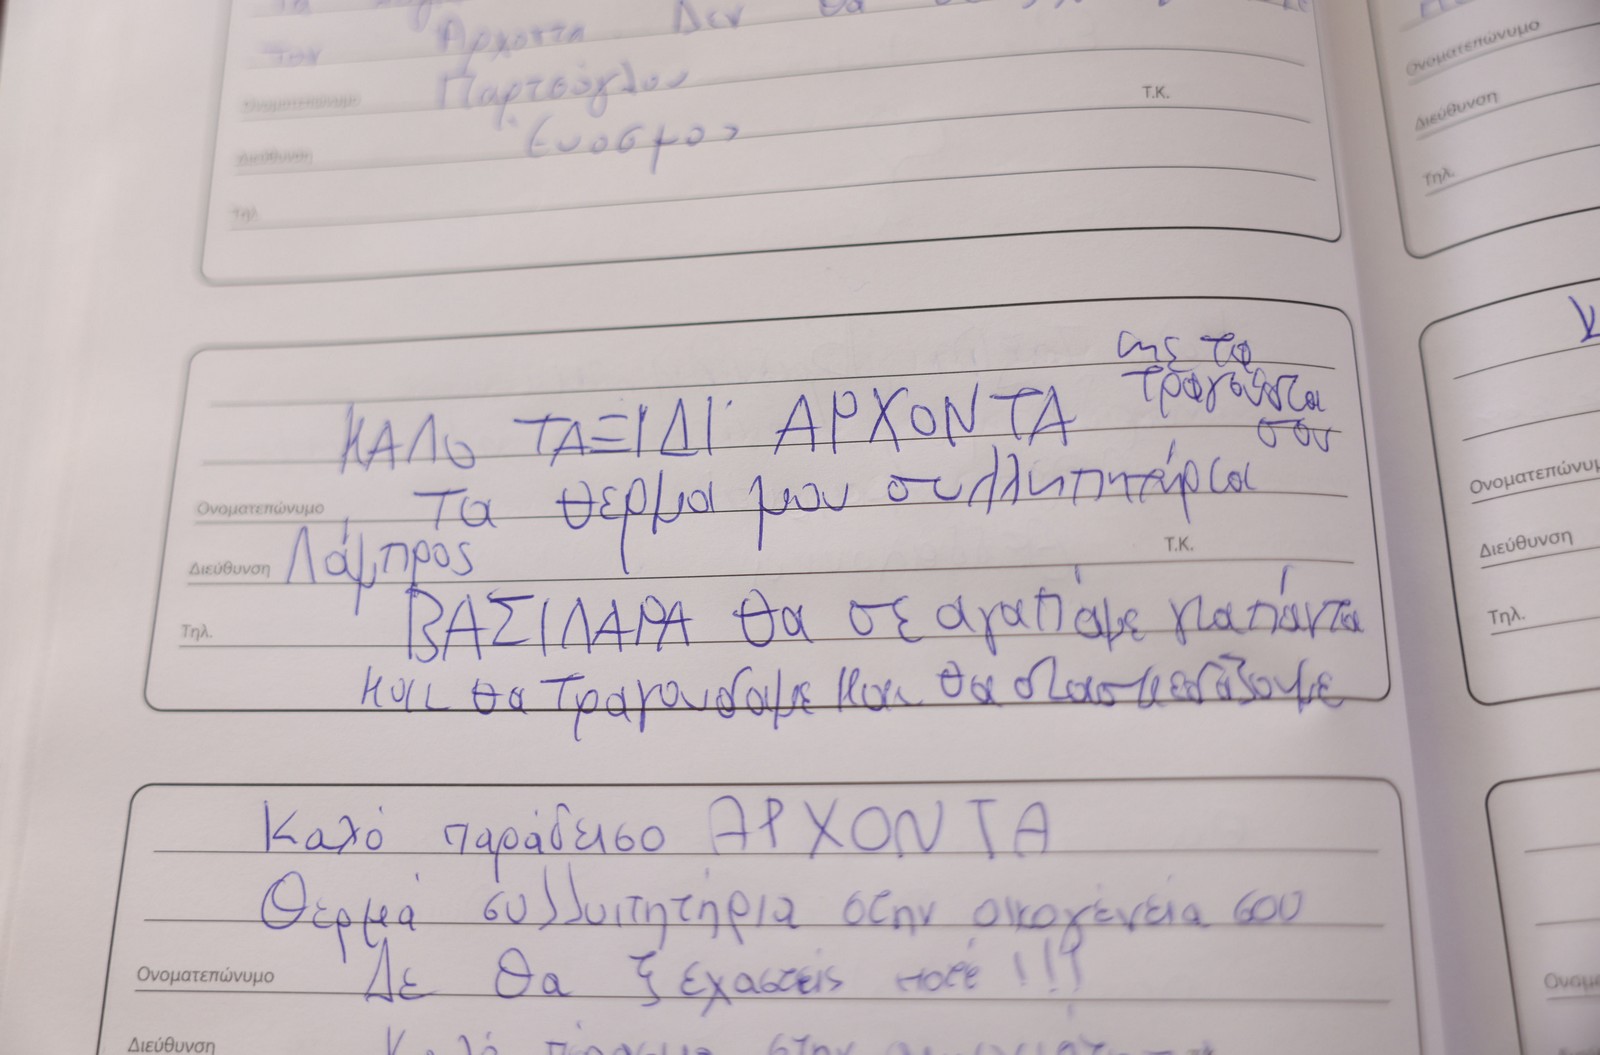 τον Άρχοντα. Δεν θα
Ονοματεπώνυμο Παρτσόγλου
Τ.Κ.
Διεύθυνση Εύοσμος
Τηλ.
ΚΑΛΟ ΤΑΞΙΔΙ ΑΡΧΟΝΤΑ
με τα
τραγούδια
σου
Ονοματεπώνυμο Τα θερμα μου συλληπητάρια
Διεύθυνση Λάμπρος Τ.Κ.
Τηλ. ΒΑΣΙΛΑΡΑ θα σε αγαπάμε για πάντα
και θα τραγουδαμε και θα διασκεδάζουμε
Καλό παράδεισο ΑΡΧΟΝΤΑ
Θερμά συλλυπητήρια στην οικογένεια σου
Ονοματεπώνυμο Δε θα ξεχαστείς ποτέ !!!
Διεύθυνση
Ονοματεπώνυμο
Διεύθυνση
Τηλ.
Ονοματεπώνυμο
Διεύθυνση
Τηλ.